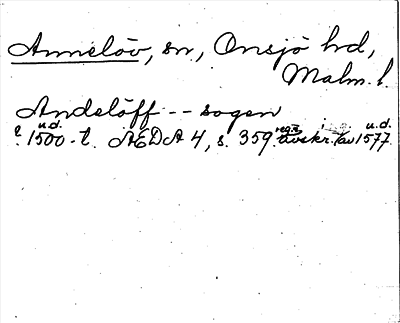 Annelöv, sn, Onsjö hd,
Malm. l.
Andslöff -- sogen
u.d. u.d.
1500-t. ÆDA 4, s. 359. avskr. av 1577